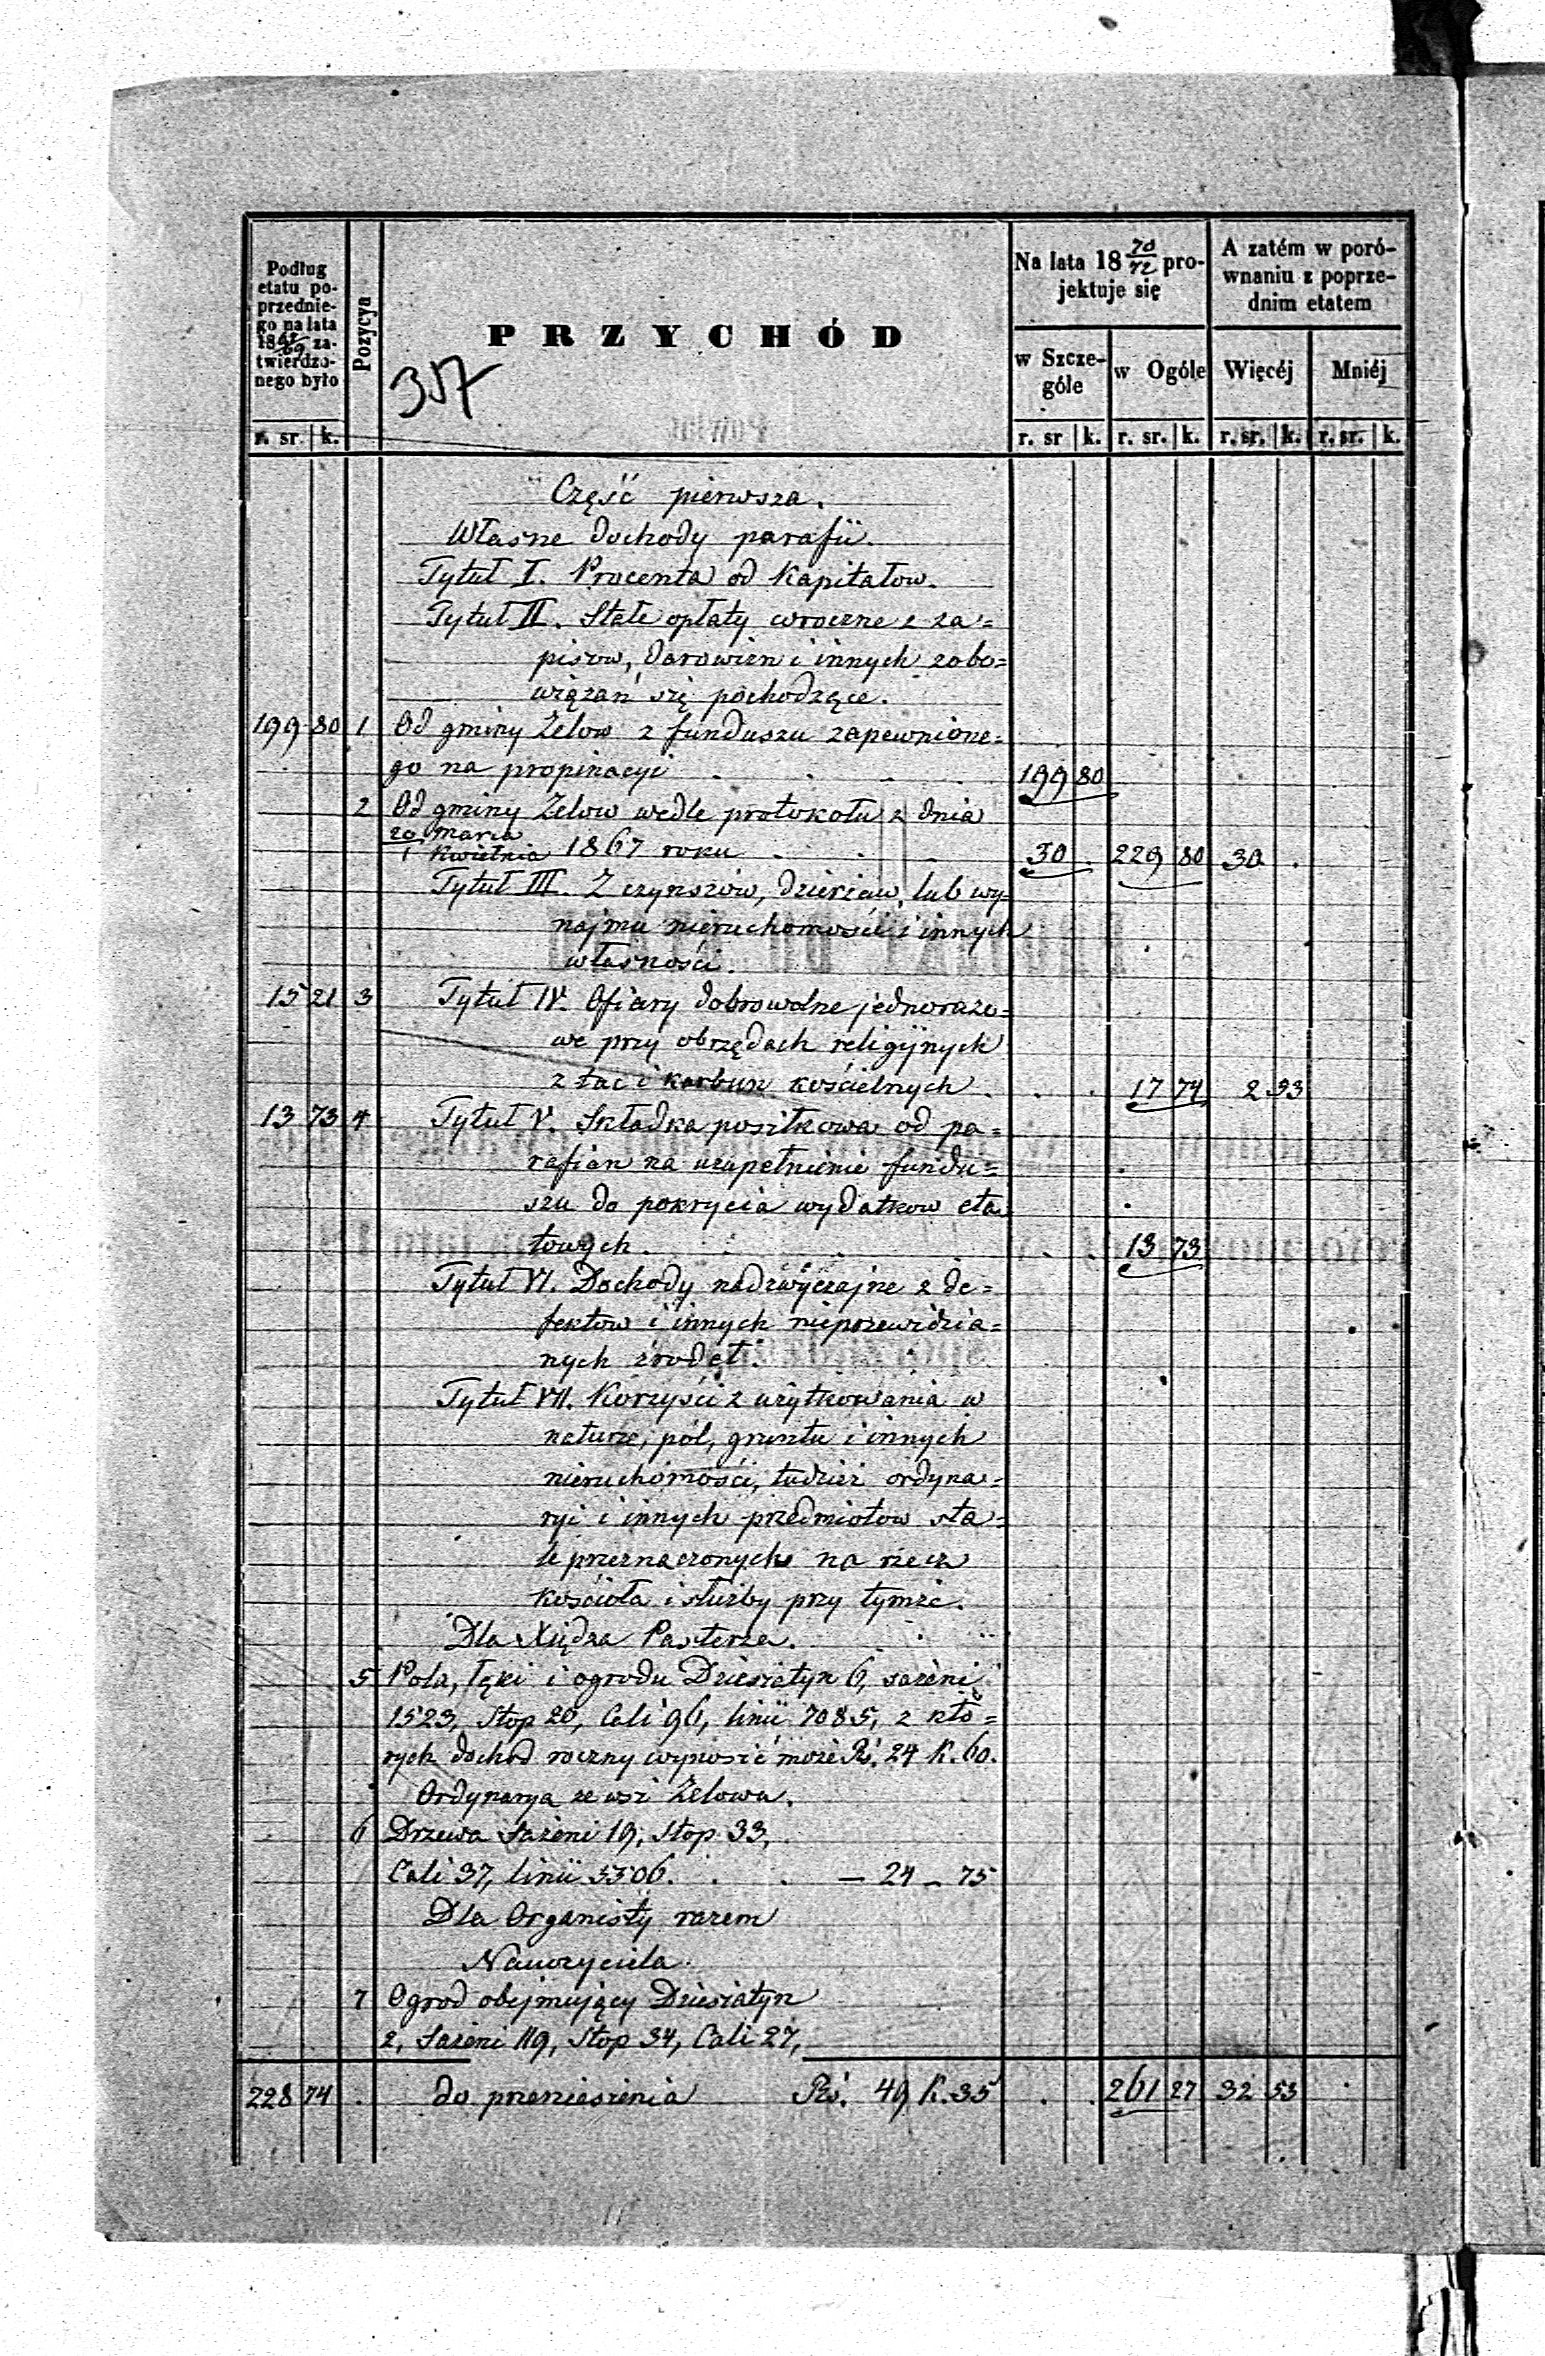 Podług etatu poprzedniego na lata 18 67/69 zatwierdzonego było
Pozycya
PRZYCHÓD
317
Na lata 18 70/72 projektuje się
w Szczególe
w Ogóle
A zatém w porównaniu z poprzednim etatem
Więcéj
Mniéj
r. sr. k. r. sr k. r. sr. k. r. sr. k. r. sr. k.
Część pierwsza.
Własne dochody parafii.
Tytuł I. Procenta od Kapitałow.
Tytuł II. Stałe opłaty coroczne z za=
pisow, darowizn i innych zobo=
wiązań się pochodzące.
199 80 1 Od gminy Zelow z funduszu zapewnione=
go na propinacyi . . . . 199 80
2 Od gminy Zelow wedle protokołu z dnia
20 Marca / 1 Kwietnia 1867 roku . . . 30 . 229 80 30 .
Tytuł III. Z czynszów, dzierżaw, lub wy=
najmu nieruchomości i innych
własności.
15 21 3 Tytuł IV. Ofiary dobrowolne jednorazo=
we przy obrzędach religijnych
z tac i karbon kościelnych . . . 17 74 2 53
13 73 4 Tytuł V. Składka posiłkowa od pa=
rafian na uzupełnienie fundu=
szu do pokrycia wydatkow eta
towych . . . . 13 73
Tytuł VI. Dochody nadzwyczajne z de=
fektow i innych nieprzewidzia=
nych źrodeł.
Tytuł VII. Korzyści z użytkowania w
naturze, pól, gruntu i innych
nieruchomości, tudzież ordyna=
ryi i innych przedmiotow sta=
le przeznaczonych na rzecz
Kościoła i służby przy tymże.
Dla Xiędza Pasterza.
5 Pola, łąki i ogrodu Dziesiatyn 6, sażeni
1523, Stop 20, Cali 96, linii 7085, z któ=
rych dochod roczny wynosić może Rś. 24 K. 60.
Ordynarya ze wsi Zelowa.
6 Drzewa Sażeni 19, Stop 33,
Cali 37, linii 5506. . . — 24 — 75
Dla Organisty razem
Nauczyciela.
7 Ogrod obejmujący Dziesiatyn
2, Sażeni 119, Stop 34, Cali 27,
228 74 . do przeniesienia Rś. 49 K. 35 . . 261 27 32 53 .